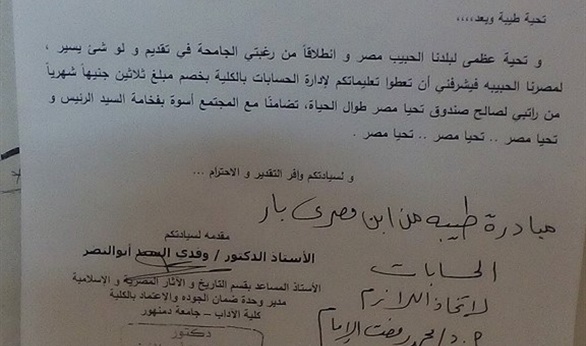 تحية طيبة وبعد،،،،
و تحية عظمى لبلدنا الحبيب مصر و انطلاقاً من رغبتي الجامحة في تقديم و لو شئ يسير ،
لمصرنا الحبيبه فيشرفني أن تعطوا تعليماتكم لإدارة الحسابات بالكلية بخصم مبلغ ثلاثين جنيهاً شهرياً
من راتبي لصالح صندوق تحيا مصر طوال الحياة، تضامنًا مع المجتمع أسوة بفخامة السيد الرئيس و
تحيا مصر .. تحيا مصر .. تحيا مصر .
و لسيادتكم وافر التقدير و الاحترام ...
مبادرة طيبه من ابن مصرى بار
مقدمه لسيادتكم
الأستاذ الدكتور / وفدي السيد أبوالنضر
الأستاذ المساعد بقسم التاريخ و الآثار المصرية و الإسلامية
مدير وحدة ضمان الجوده والاعتماد بالكلية
كلية الآداب – جامعة دمنهور
الحسابات
لاتخاذ اللازم
دكتور